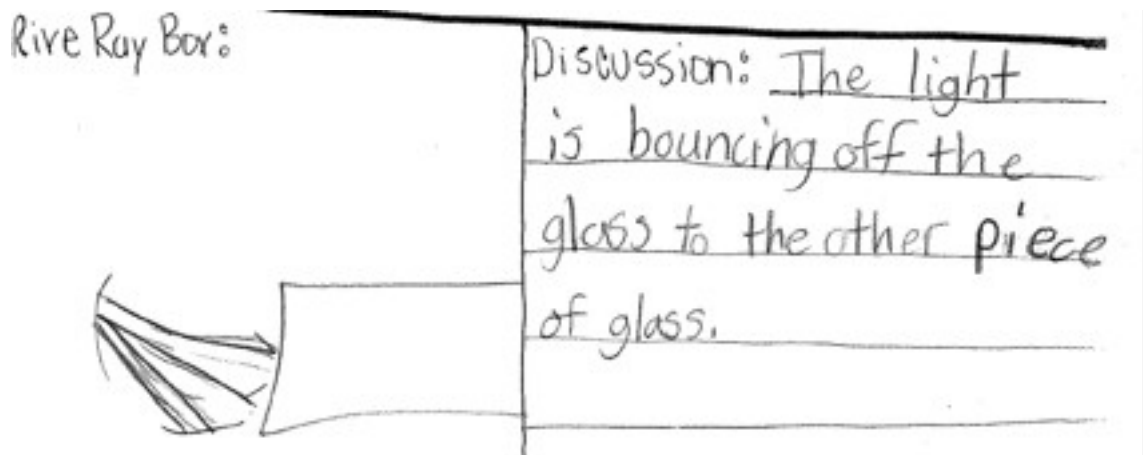 Rive Ray Box:
Discussion: The light
is bouncing off the
glass to the other piece
of glass.